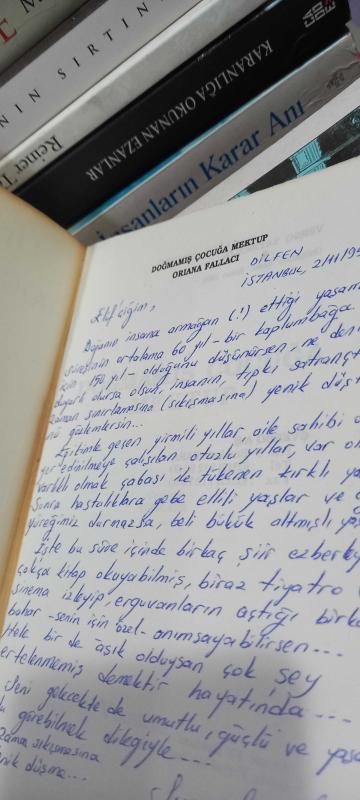 NIN SIRTIN
Reiner T
KARANLIĞA OKUNAN EZANLAR
İnsanların Karar Anı
DOĞMAMIŞ ÇOCUĞA MEKTUP
ORIANA FALLACI
DİLFEN
İSTANBUL, 2/11/19
Elif'ciğim,
Doğanın insana armağan (!) ettiği yaşam
süresinin ortalama 60 yıl - bir kaplumbağa
için, 150 yıl - olduğunu düşünürsen, ne den
duyarlı dursa olsun, insanın, tıpkı satrançt
zaman sınırlamasına (sıkışmasına) yenik düş
nü gözlemlersin...
Eğitimle geçen yirmili yıllar, aile sahibi
yer edinilmeye çalışılan otuzlu yıllar, var ol
varlıklı olmak çabası ile tükenen kırklı ya
Sonra hastalıklara gebe ellili yaşlar ve
yüreğimiz durmazsa, beli bükük altmışlı ya
İşte bu süre içinde birkaç şiir ezberley
çokça kitap okuyabilmiş, biraz tiyatro
sinema izleyip, erguvanların açtığı birka
bahar - senin için özel - anımsayabilirsen...
Hele bir de aşık olduysan çok şey
ertelenmemiş demektir hayatında...
Seni gelecekte de umutlu, güçlü ve yaşa
görebilmek dileğiyle...
zaman sıkışmasına
yenik düşme...